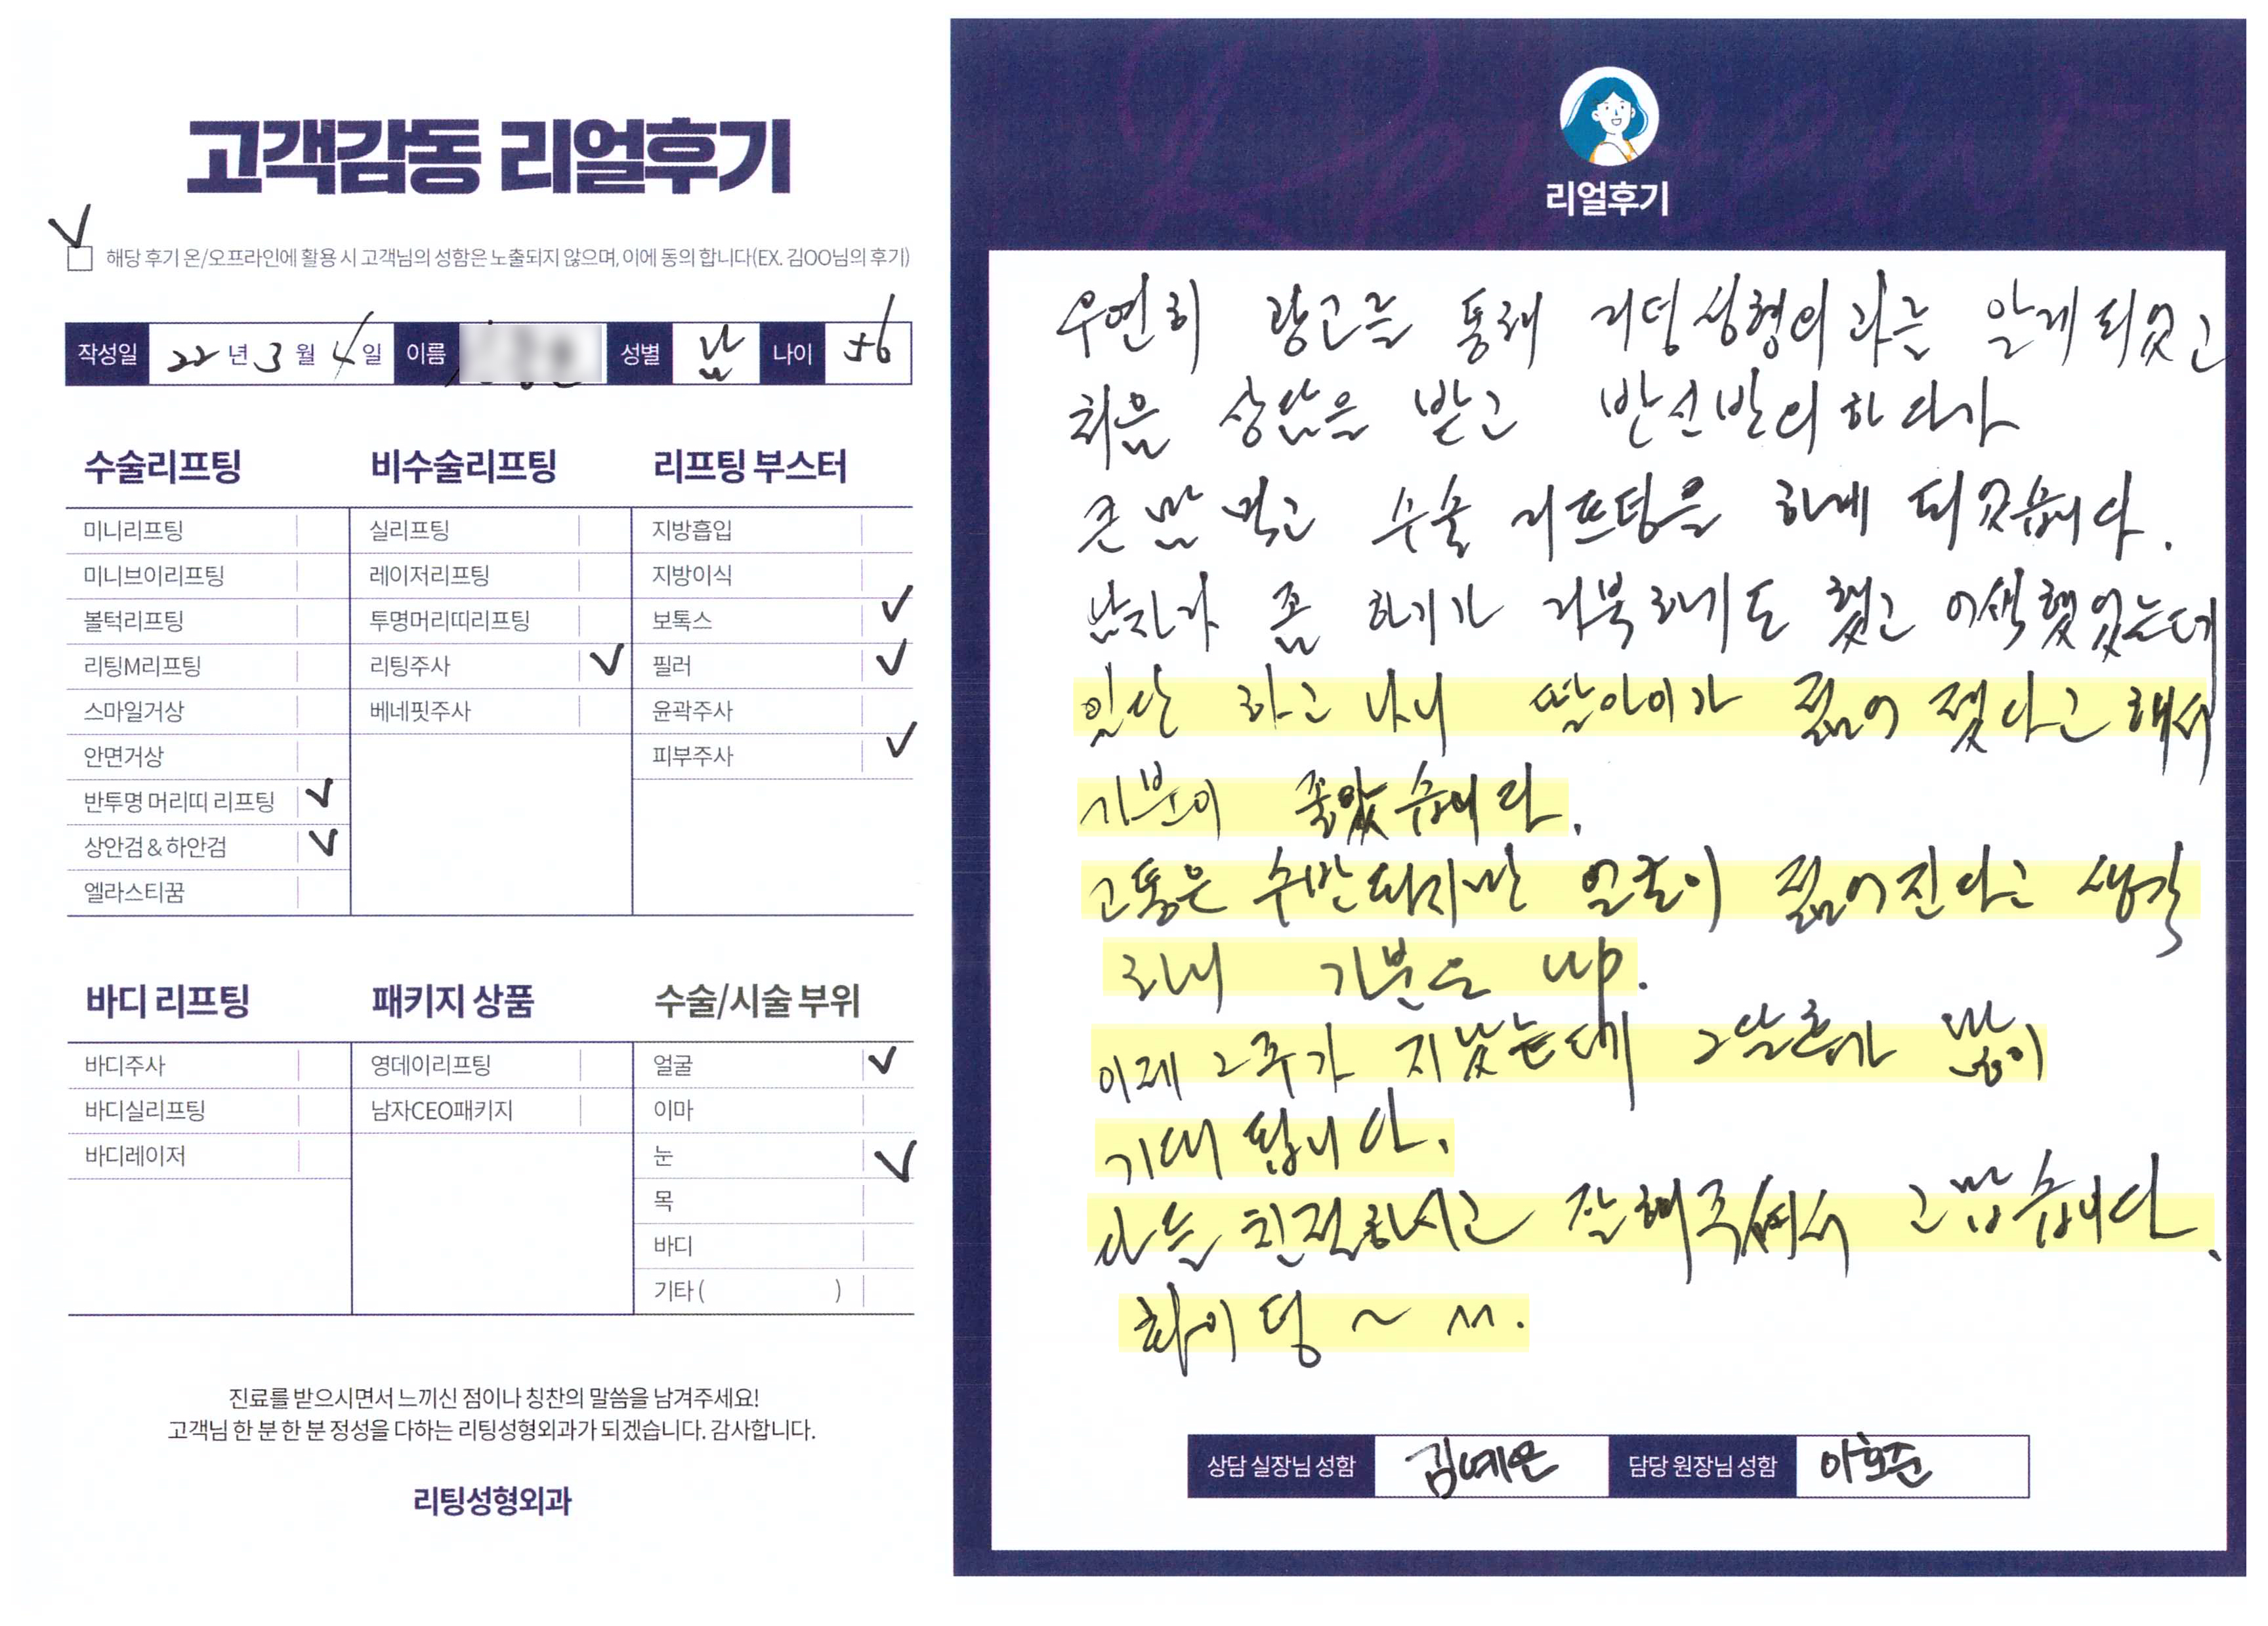 고객감동 리얼후기
해당 후기 온/오프라인에 활용 시 고객님의 성함은 노출되지 않으며, 이에 동의 합니다(EX. 김OO님의 후기)
작성일 22년 3월 4일 이름 성별 남 나이 56
수술리프팅
미니리프팅
미니브이리프팅
볼턱리프팅
리팅M리프팅
스마일거상
안면거상
반투명 머리띠 리프팅
상안검&하안검
엘라스티꿈
비수술리프팅
실리프팅
레이저리프팅
투명머리띠리프팅
리팅주사
베네핏주사
리프팅 부스터
지방흡입
지방이식
보톡스
필러
윤곽주사
피부주사
바디 리프팅
바디주사
바디실리프팅
바디레이저
패키지 상품
영데이리프팅
남자CEO패키지
수술/시술 부위
얼굴
이마
눈
목
바디
기타 ( )
진료를 받으시면서 느끼신 점이나 칭찬의 말씀을 남겨주세요!
고객님 한 분 한 분 정성을 다하는 리팅성형외과가 되겠습니다. 감사합니다.
리팅성형외과
리얼후기
우연히 광고를 통해 리팅성형외과를 알게되었고
처음 상담을 받고 반신반의하다가
큰 맘 먹고 수술 리프팅을 하게 되었습니다.
남자가 좀 하기가 거북하기도 했고 어색했었는데
일단 하고 나니 딸아이가 젊어 졌다고 해서
기분이 좋았습니다.
고통은 수반되지만 얼굴이 젊어진다고 생각
하니 기분은 up.
이제 2주가 지났는데 2달후가 많이
기대 됩니다.
다들 친절하시고 잘해주셔서 고맙습니다.
화이팅 ~ ^^.
상담 실장님 성함 김예은 담당 원장님 성함 이호준